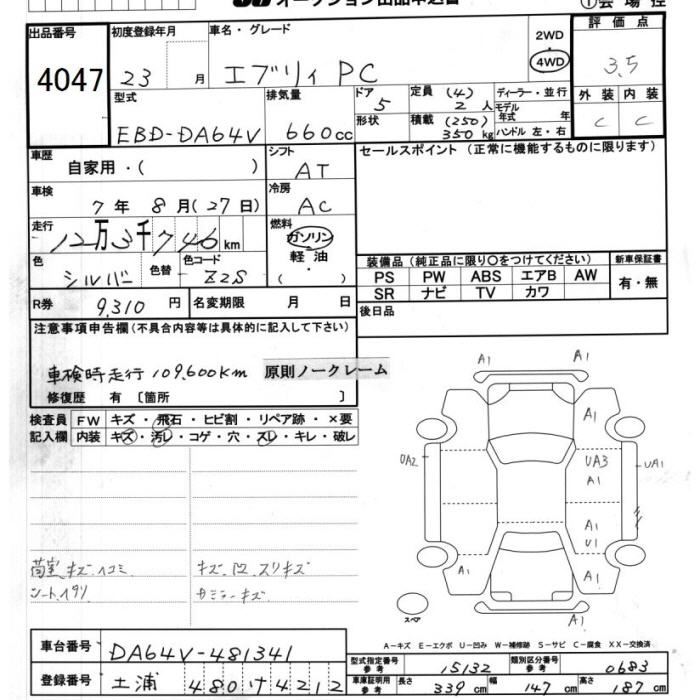 オークション出品申込書
①会場控
出品番号
4047
初度登録年月
23 月
車名・グレード
エブリィ PC
2WD
4WD
評価点
3.5
外装 内装
C C
型式
EBD-DA64V
排気量
660cc
ドア
5
形状
定員 (4)
2人
積載 (250)
350kg
ディーラー・並行
モデル年式 年
ハンドル 左・右
車歴
自家用・( )
シフト
AT
セールスポイント (正常に機能するものに限ります)
車検
7年 8月(27日)
冷房
AC
走行
12万3千746km
燃料
ガソリン
軽油
( ・ )
色
シルバー
色替
色コード
Z2S
装備品 (純正品に限り○をつけてください)
PS PW ABS エアB AW
SR ナビ TV カワ
新車保証書
有・無
R券 9,310 円
名変期限 月 日
後日品
注意事項申告欄 (不具合内容等は具体的に記入して下さい)
車検時走行 109,600km
原則ノークレーム
修復歴 有 [箇所 ]
検査員記入欄
FW キズ・飛石・ヒビ割・リペア跡・×要
内装 キズ・汚レ・コゲ・穴・スレ・キレ・破レ
荷室キズ、ヘコミ
シートヘタリ
キズ、凹、スリキズ
A1 A1
A1
UA2 UA3 UA1
A1
A1
U1
A1 A1
A1
スペア
A－キズ E－エクボ U－凹み W－補修跡 S－サビ C－腐食 XX－交換済
車台番号 DA64V-481341
登録番号 土浦 480け4212
型式指定番号 参考 15132
類別区分番号 参考 0683
車庫証明用 参考 長さ 339cm 幅 147cm 高さ 187cm